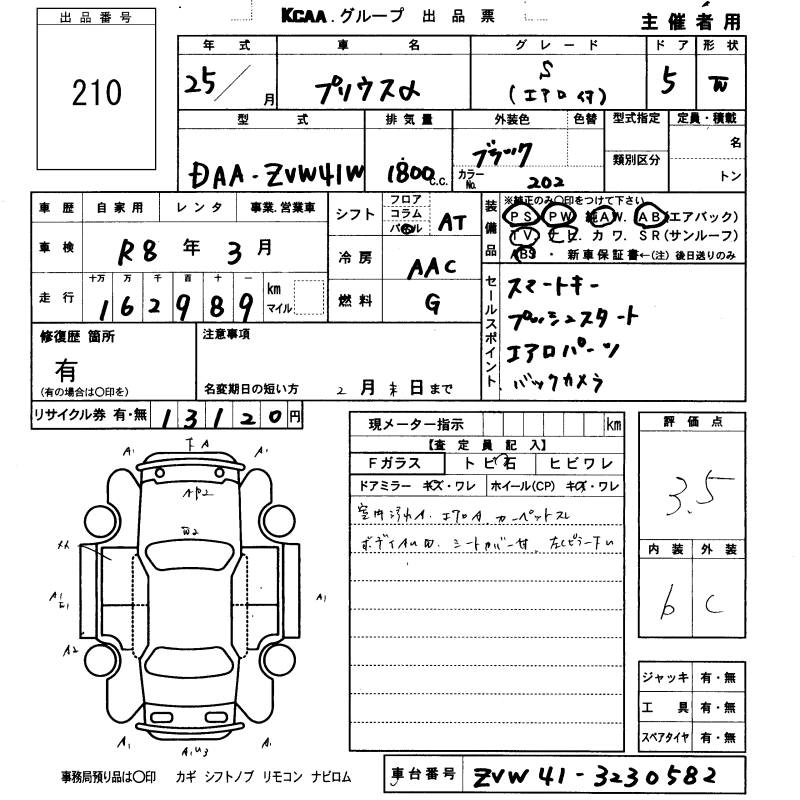 出品番号
210
KCAA.グループ 出品票
主催者用
年式 車名 グレード ドア 形状
25/月 プリウスα S (エアロ付) 5 W
型式 排気量 外装色 色替 型式指定 定員・積載
DAA-ZVW41W 1800c.c. ブラック 類別区分 名
カラーNo. 202 トン
車歴 自家用 レンタ 事業.営業車
車検 R8年3月
走行 十万 万 千 百 十 一
162989 km マイル
シフト フロア コラム パネル AT
冷房 AAC
燃料 G
装備品
※純正のみ○印をつけて下さい
PS PW 純AW. AB(エアバック)
TV ナビ. カワ. SR(サンルーフ)
ABS ・ 新車保証書←(注)後日送りのみ
セールスポイント
スマートキー
プッシュスタート
エアロパーツ
バックカメラ
修復歴 箇所
有
(有の場合は○印を)
注意事項
名変期日の短い方 2月末日まで
リサイクル券 有・無 13120円
現メーター指示 km
【査定員記入】
Fガラス トビ石 ヒビワレ
ドアミラー キズ・ワレ ホイール(CP) キズ・ワレ
室内汚れA. エアロA. カーペットスレ
評価点
3.5
内装 外装
b C
A1 A A1
AP2
W2
A1
A1
A2
A1 A1
ジャッキ 有・無
工具 有・無
スペアタイヤ 有・無
事務局預り品は○印 カギ シフトノブ リモコン ナビロム
車台番号 ZVW41-3230582